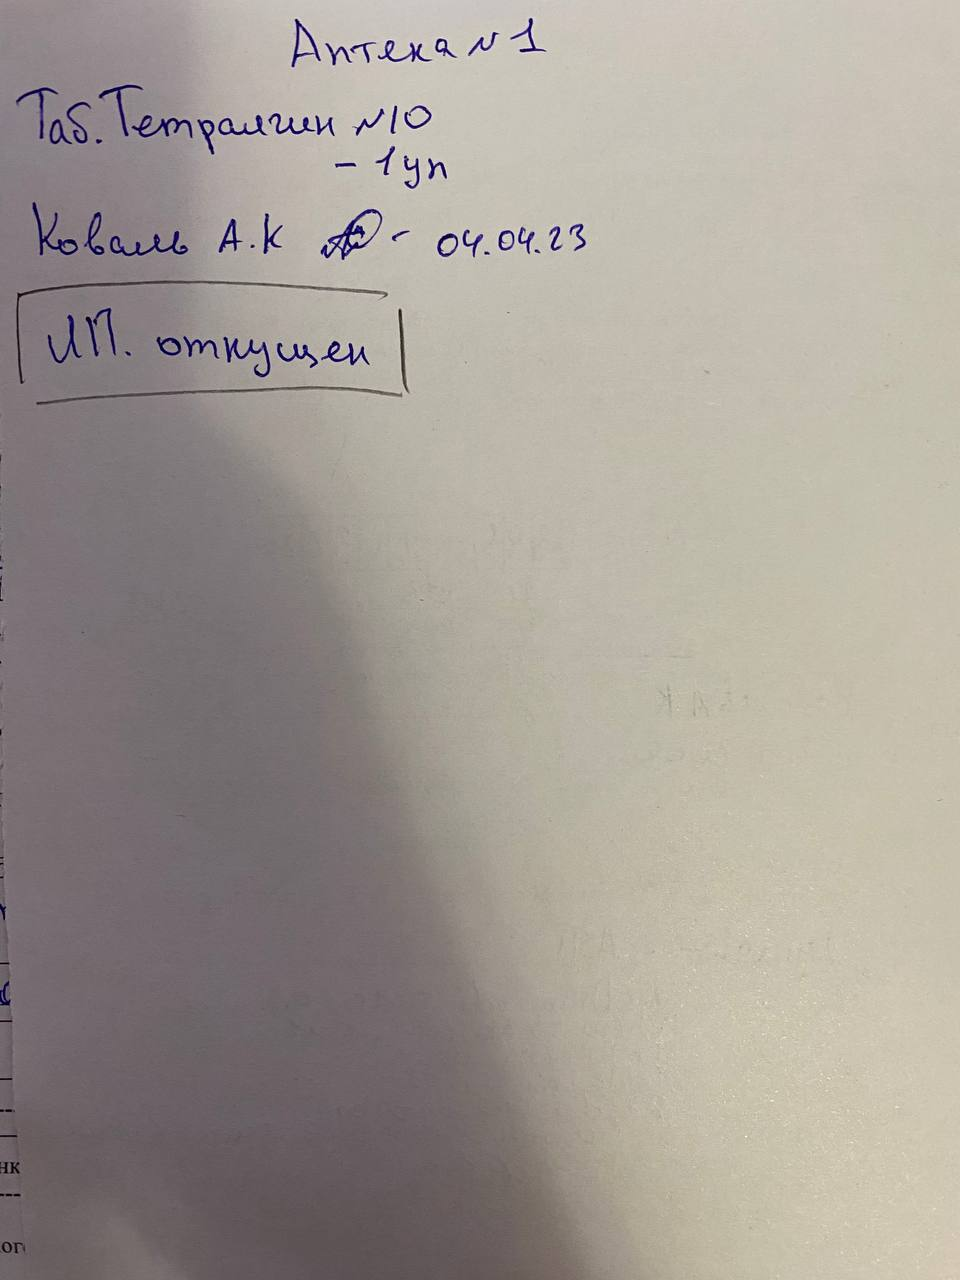 Аптека №1
Таб. Тетралгин №10
- 1 уп
Коваль А.К - 04.04.23
ЛП. отпущен
нк
ог